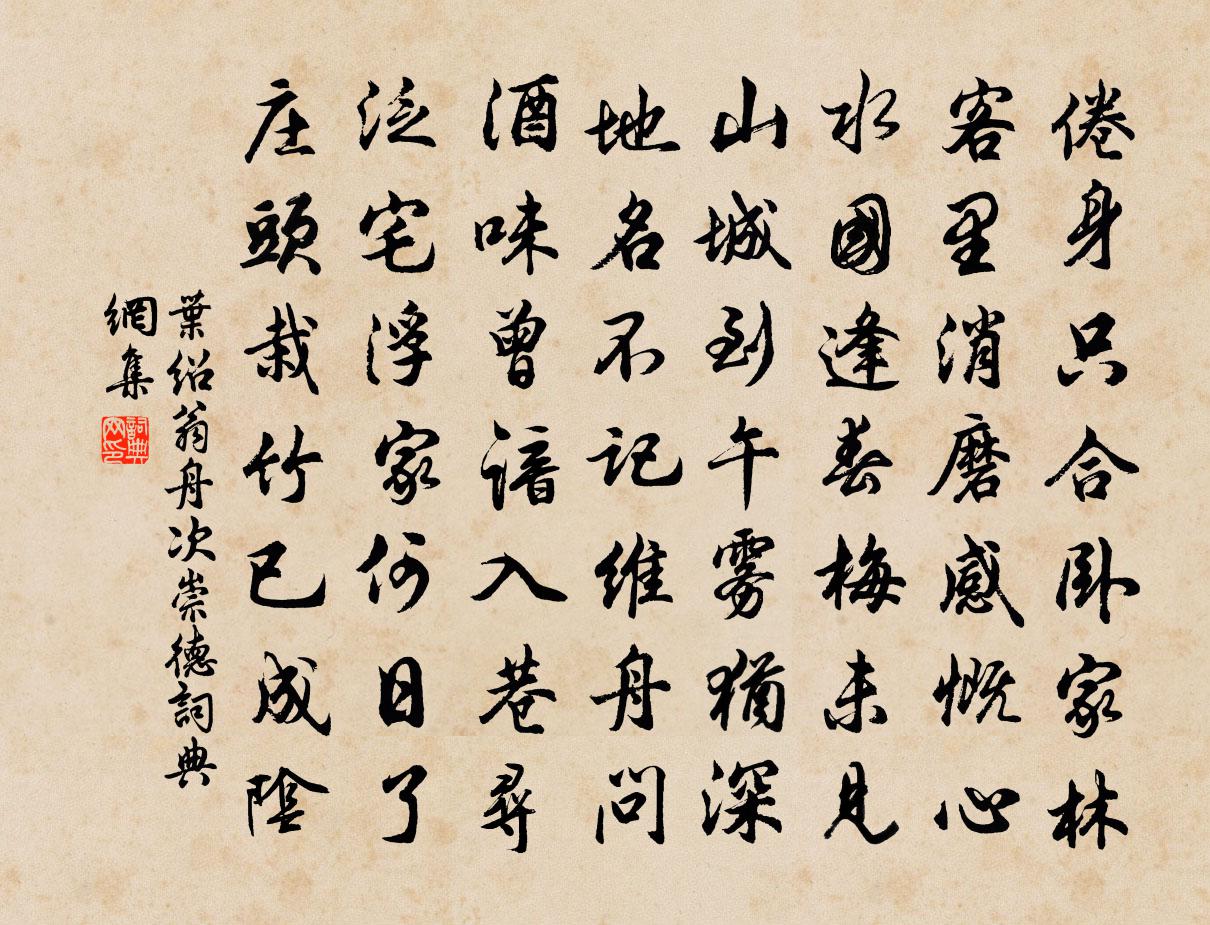 倦身只合卧家林
客里消磨感慨心
水國逢春梅未見
山城到午雾猶深
地名不記維舟問
酒味曾谙入巷尋
泛宅浮家何日了
庄頭栽竹已成陰
葉绍翁舟次崇德詞典
網集
詞典
网印